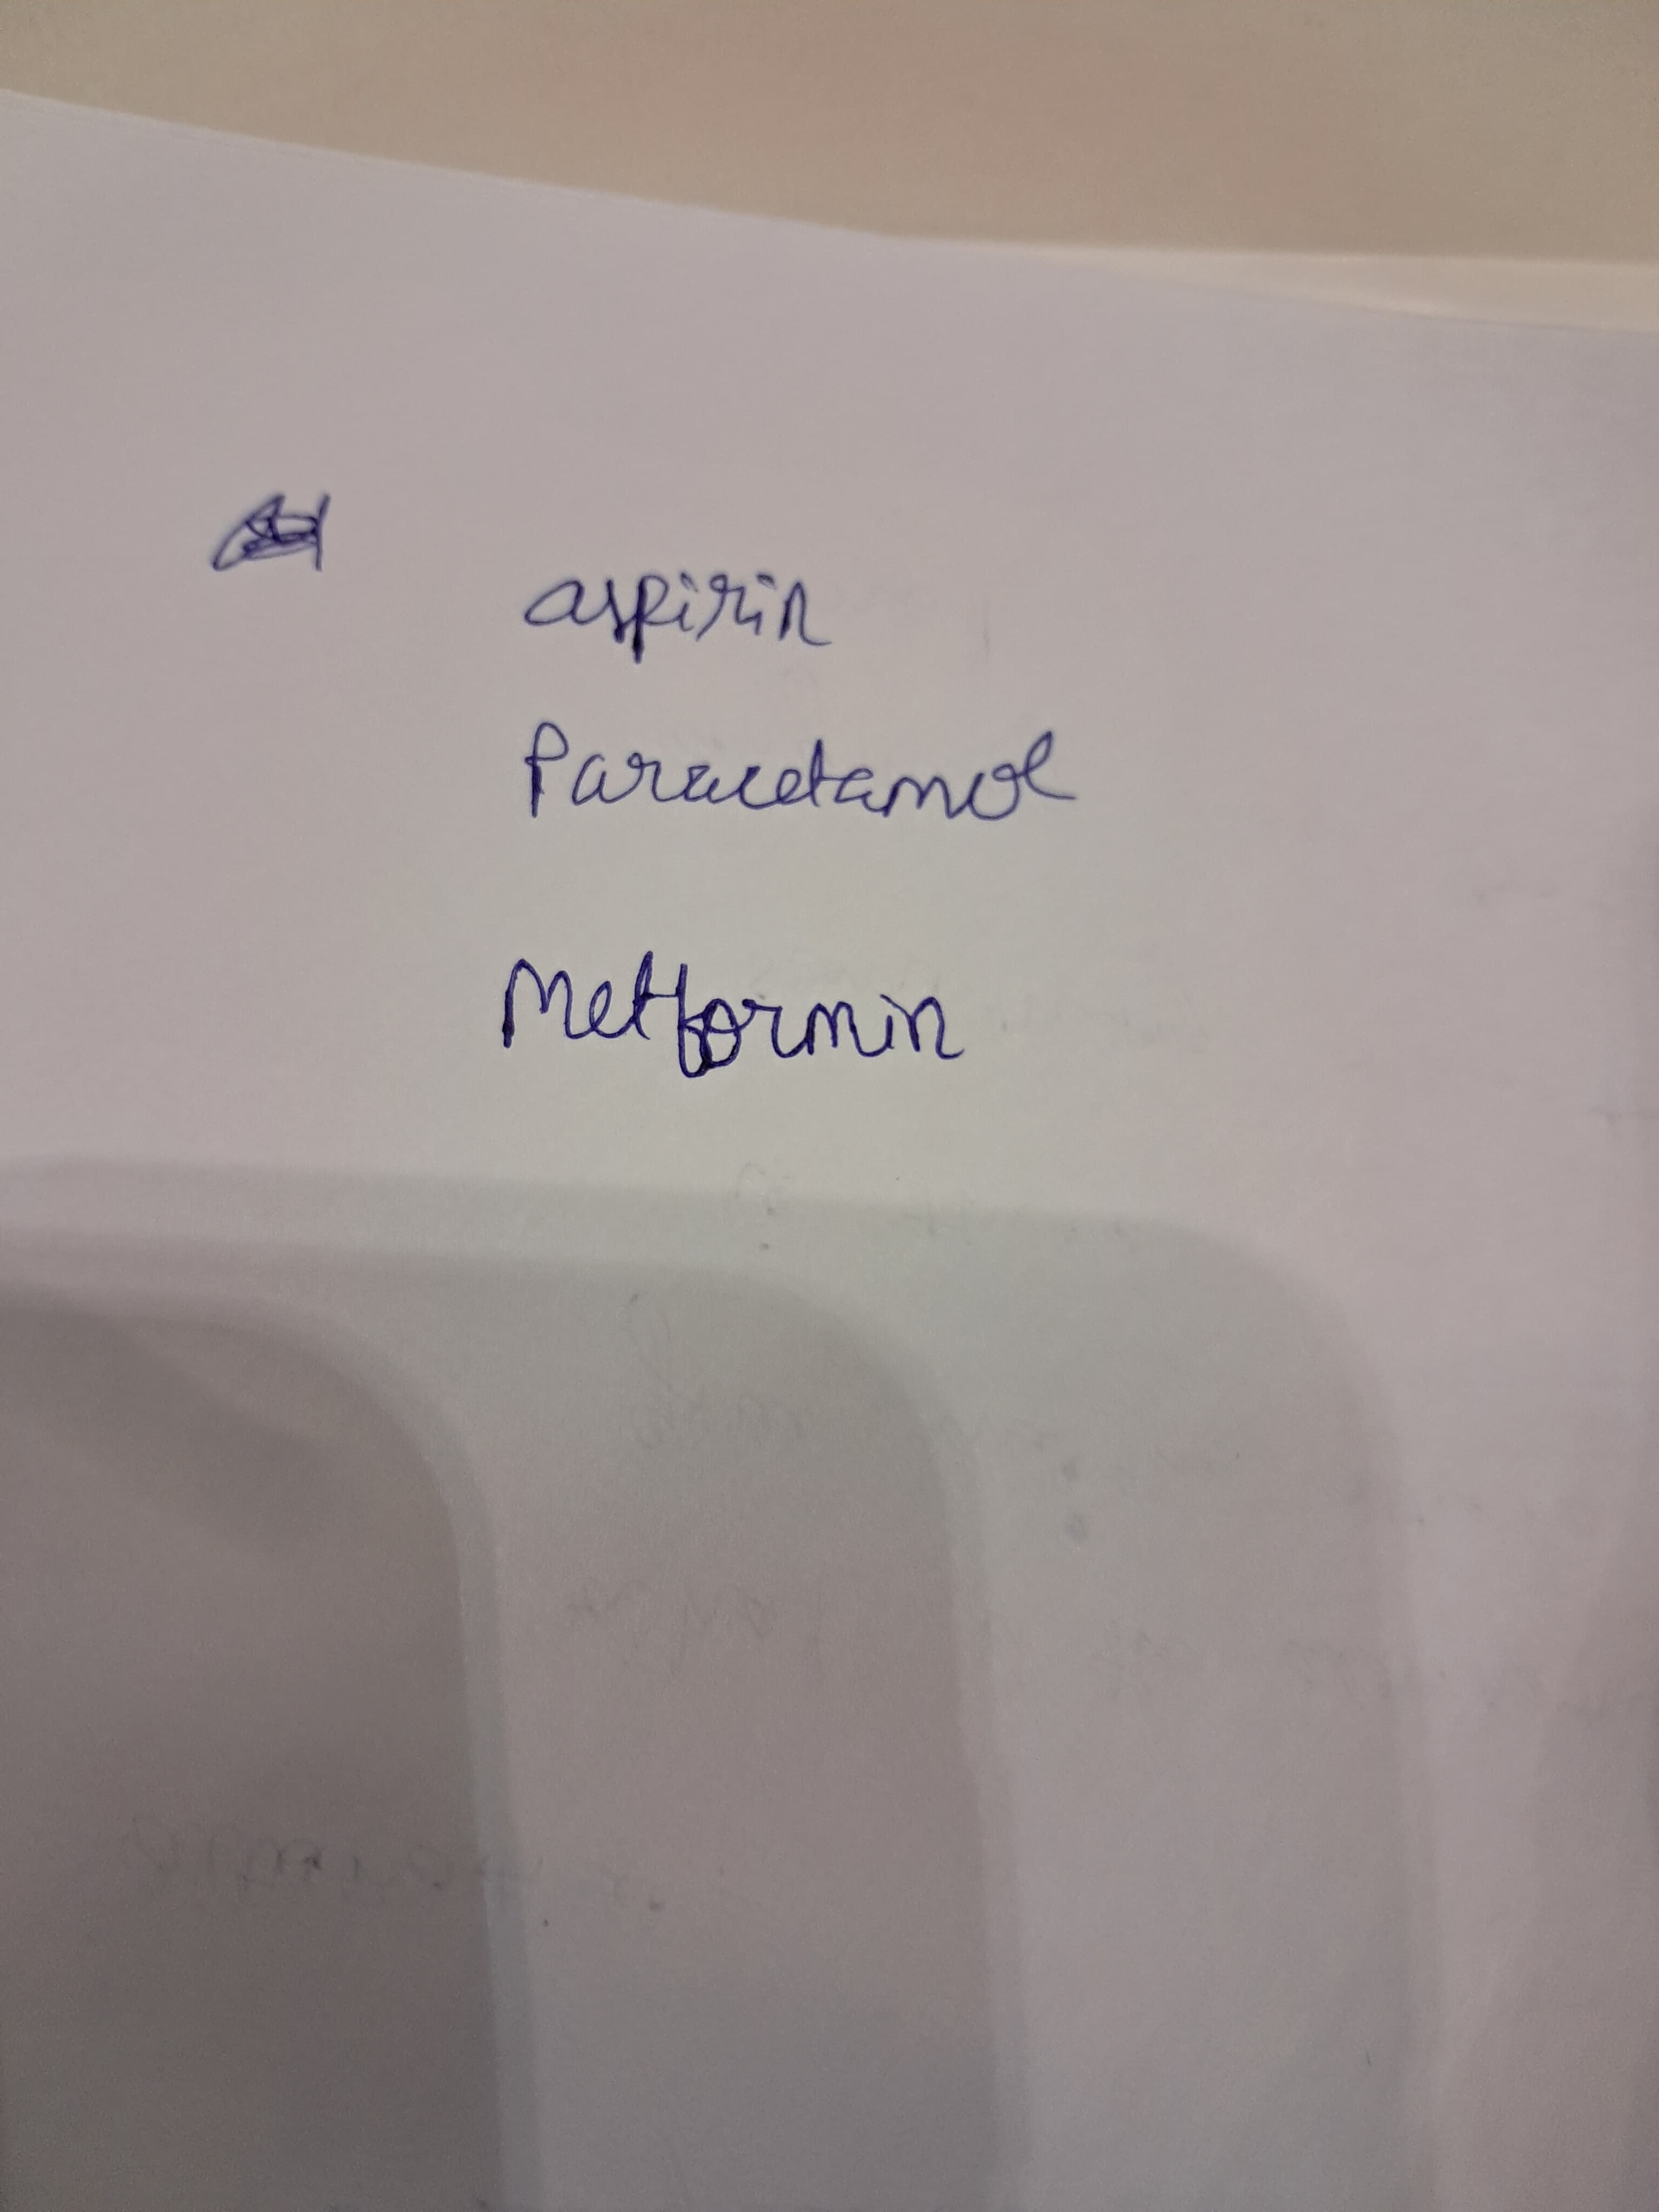 aspirin
Paracetamol
Metformin